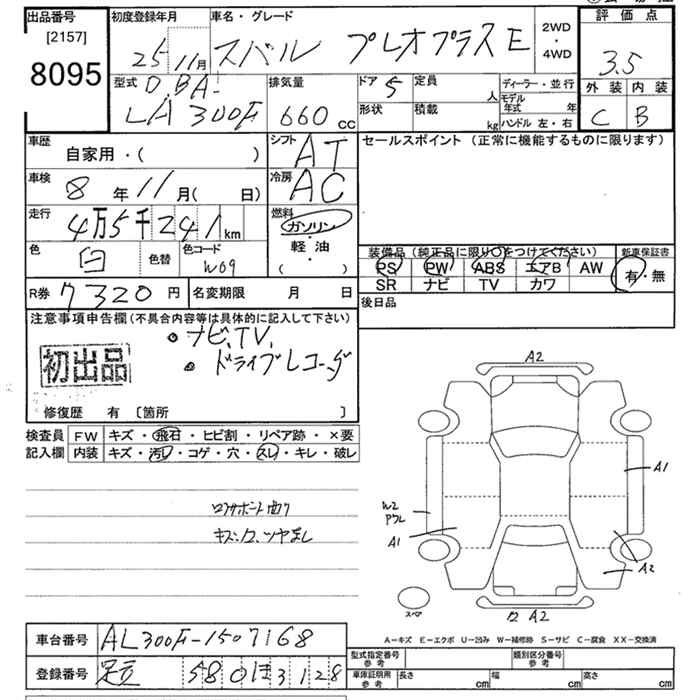 出品番号 初度登録年月 車名・グレード 評価点
[2157]
8095 25年11月 スバル プレオプラス E 2WD・4WD 3.5
型式 DBA- 排気量 ドア 5 定員 人 ディーラー・並行 外装 内装
LA300F 660 cc 形状 積載 kg モデル年式 年 ハンドル 左・右 C B
車歴 シフト セールスポイント(正常に機能するものに限ります)
自家用・( ) AT
車検 冷房
8年11月( 日) AC
走行 燃料
4万5千241km ガソリン・軽・油
色 白 色替 色コード W09 ・( )
装備品(純正品に限り〇をつけてください) 新車保証書
PS PW ABS エアB AW 有・無
SR ナビ TV カワ
R券 7320円 名変期限 月 日 後日品
注意事項申告欄(不具合内容等は具体的に記入して下さい)
・ナビ、TV、
初出品 ・ドライブレコーダ
修復歴 有 〔箇所 〕
検査員 FW キズ・飛石・ヒビ割・リペア跡・×要
記入欄 内装 キズ・汚レ・コゲ・穴・スレ・キレ・破レ
A2
A1
W2
A1
A2
A2
スペア
A-キズ E-エクボ U-凹み W-補修跡 S-サビ C-腐食 XX-交換済
車台番号 AL300F-1507168
型式指定番号 参考 類別区分番号 参考
登録番号 足立 580 ほ 3128
車庫証明用 参考 長さ cm 幅 cm 高さ cm